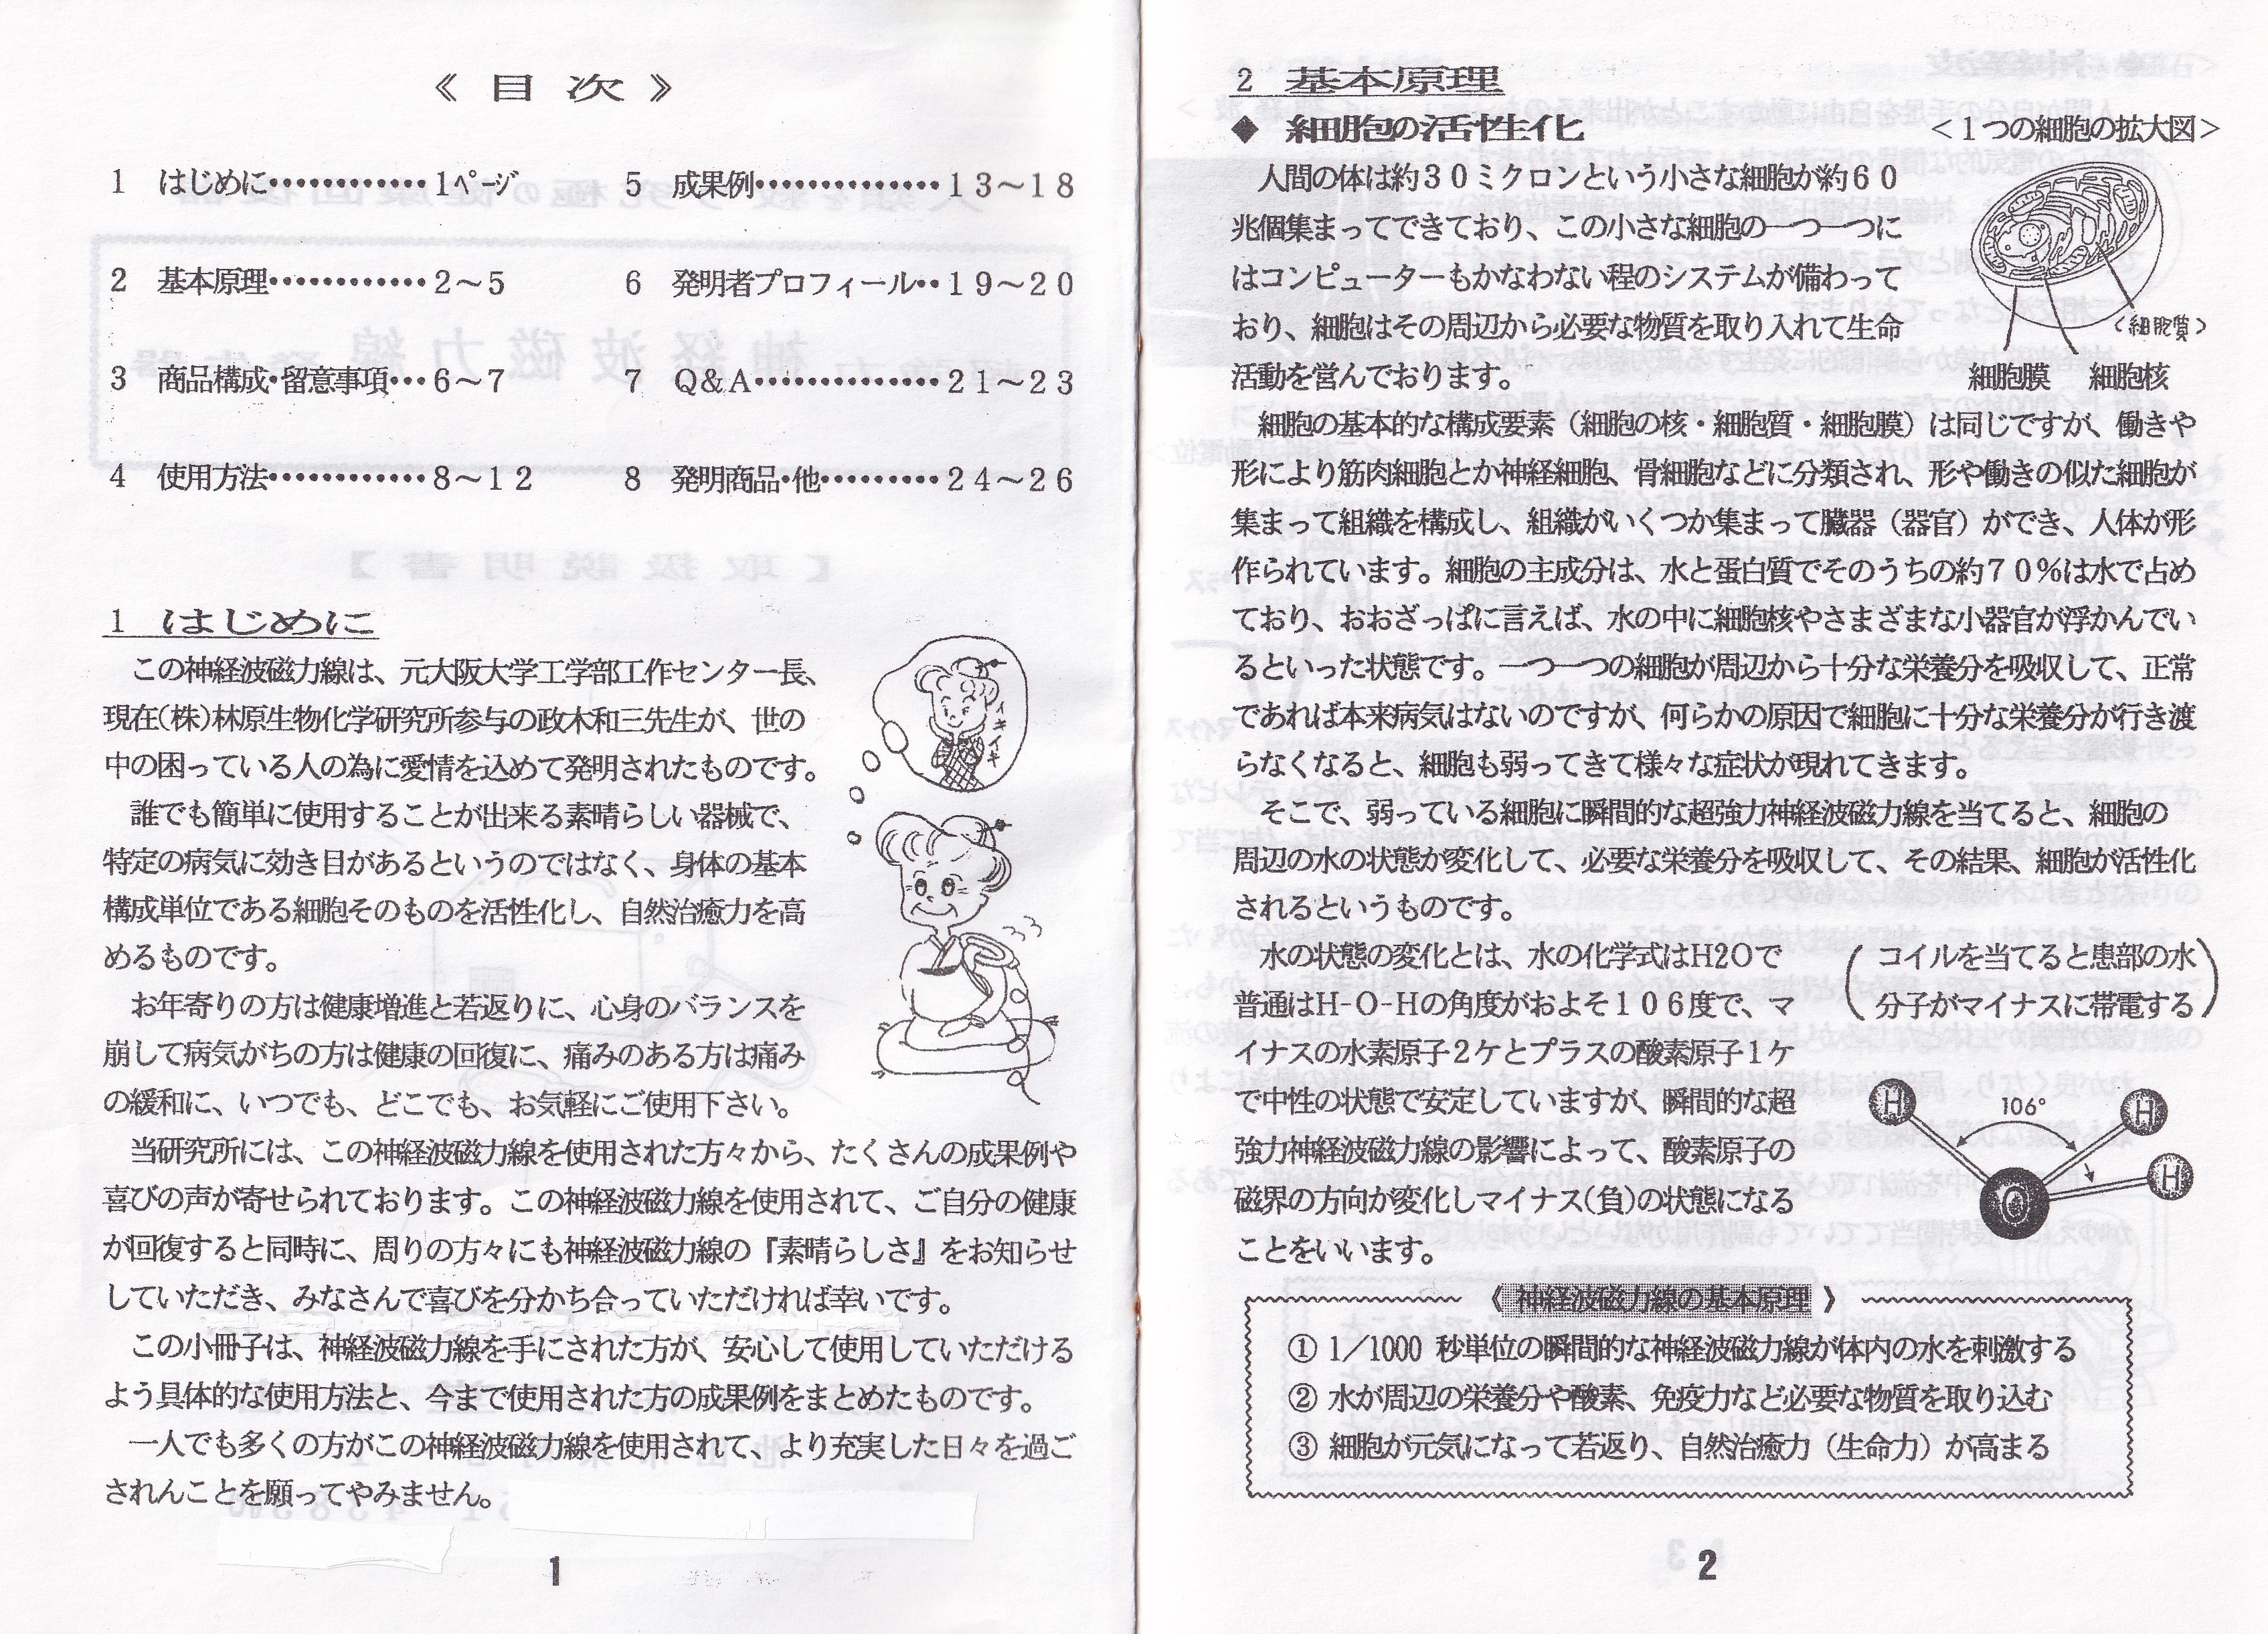 《 目 次 》
1 はじめに・・・・・・・・・・・・1ページ
2 基本原理・・・・・・・・・・・・2～5
3 商品構成・留意事項・・・6～7
4 使用方法・・・・・・・・・・・・8～12
5 成果例・・・・・・・・・・・・・・13～18
6 発明者プロフィール・・19～20
7 Q&A・・・・・・・・・・・・・・21～23
8 発明商品・他・・・・・・・・・24～26
1 はじめに
この神経波磁力線は、元大阪大学工学部工作センター長、
現在(株)林原生物化学研究所参与の政木和三先生が、世の
中の困っている人の為に愛情を込めて発明されたものです。
誰でも簡単に使用することが出来る素晴らしい器械で、
特定の病気に効き目があるというのではなく、身体の基本
構成単位である細胞そのものを活性化し、自然治癒力を高
めるものです。
お年寄りの方は健康増進と若返りに、心身のバランスを
崩して病気がちの方は健康の回復に、痛みのある方は痛み
の緩和に、いつでも、どこでも、お気軽にご使用下さい。
イキイキ
当研究所には、この神経波磁力線を使用された方々から、たくさんの成果例や
喜びの声が寄せられております。この神経波磁力線を使用されて、ご自分の健康
が回復すると同時に、周りの方々にも神経波磁力線の『素晴らしさ』をお知らせ
していただき、みなさんで喜びを分かち合っていただければ幸いです。
この小冊子は、神経波磁力線を手にされた方が、安心して使用していただける
よう具体的な使用方法と、今まで使用された方の成果例をまとめたものです。
一人でも多くの方がこの神経波磁力線を使用されて、より充実した日々を過ご
されんことを願ってやみません。
1
2 基本原理
◆ 細胞の活性化
＜1つの細胞の拡大図＞
人間の体は約30ミクロンという小さな細胞が約60
兆個集まってできており、この小さな細胞の一つ一つに
はコンピューターもかなわない程のシステムが備わって
おり、細胞はその周辺から必要な物質を取り入れて生命
活動を営んでおります。
〈細胞質〉
細胞膜 細胞核
細胞の基本的な構成要素（細胞の核・細胞質・細胞膜）は同じですが、働きや
形により筋肉細胞とか神経細胞、骨細胞などに分類され、形や働きの似た細胞が
集まって組織を構成し、組織がいくつか集まって臓器（器官）ができ、人体が形
作られています。細胞の主成分は、水と蛋白質でそのうちの約70％は水で占め
ており、おおざっぱに言えば、水の中に細胞核やさまざまな小器官が浮かんでい
るといった状態です。一つ一つの細胞が周辺から十分な栄養分を吸収して、正常
であれば本来病気はないのですが、何らかの原因で細胞に十分な栄養分が行き渡
らなくなると、細胞も弱ってきて様々な症状が現れてきます。
そこで、弱っている細胞に瞬間的な超強力神経波磁力線を当てると、細胞の
周辺の水の状態が変化して、必要な栄養分を吸収して、その結果、細胞が活性化
されるというものです。
水の状態の変化とは、水の化学式はH2Oで
普通はH-O-Hの角度がおよそ106度で、マ
イナスの水素原子2ケとプラスの酸素原子1ケ
で中性の状態で安定していますが、瞬間的な超
強力神経波磁力線の影響によって、酸素原子の
磁界の方向が変化しマイナス(負)の状態になる
ことをいいます。
（コイルを当てると患部の水
分子がマイナスに帯電する）
H 106° H
H
O
《 神経波磁力線の基本原理 》
① 1/1000 秒単位の瞬間的な神経波磁力線が体内の水を刺激する
② 水が周辺の栄養分や酸素、免疫力など必要な物質を取り込む
③ 細胞が元気になって若返り、自然治癒力（生命力）が高まる
2